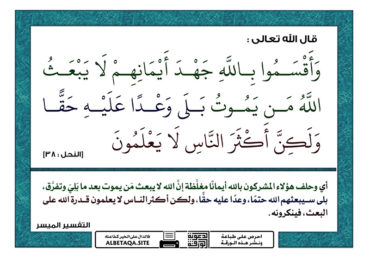 قال الله تعالى :
وَأَقْسَمُوا بِاللَّهِ جَهْدَ أَيْمَانِهِمْ لَا يَبْعَثُ
اللَّهُ مَن يَمُوتُ بَلَى وَعْدًا عَلَيْهِ حَقًّا
وَلَكِنَّ أَكْثَرَ النَّاسِ لَا يَعْلَمُونَ
[النحل : ٣٨]
أي وحلف هؤلاء المشركون بالله أيمانًا مغلَّظة إنَّ الله لا يبعث مَن يموت بعد ما بَلِيَ وتفرَّق،
بلى سيبعثهم الله حتمًا، وعدًا عليه حقًّا، ولكن أكثر الناس لا يعلمون قدرة الله على
البعث، فينكرونه.
التفسير الميسر
احرص على طباعة
ونشر هذه الورقة
فالدال على الخير كفاعله
ALBETAQA.SITE